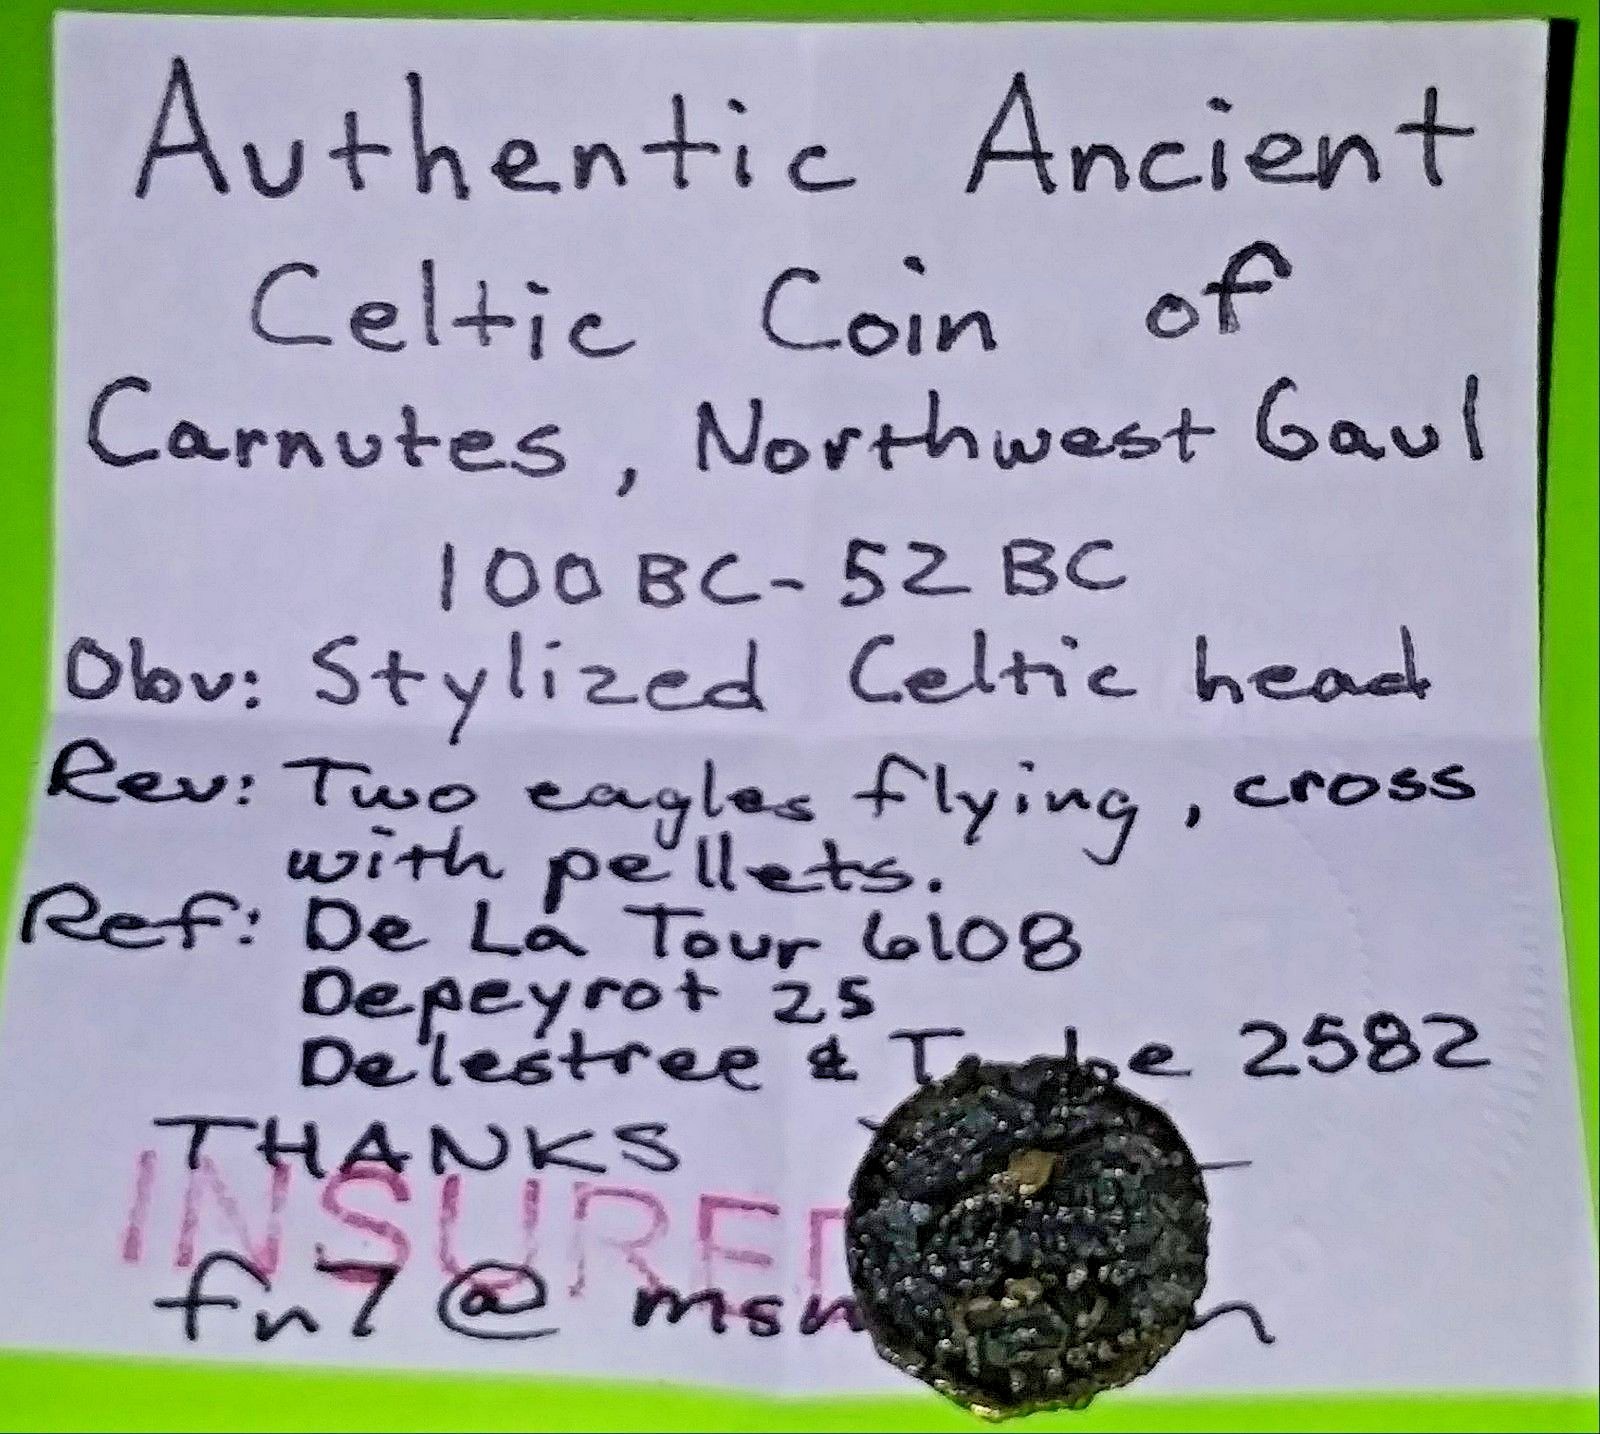 Authentic Ancient
Celtic Coin of
Carnutes, Northwest Gaul
100 BC - 52 BC
Obv: Stylized Celtic head
Rev: Two eagles flying, cross
with pellets.
Ref: De La Tour 6108
Depeyrot 25
Delestree & 2582
THANKS
INSURED
fn7@msn